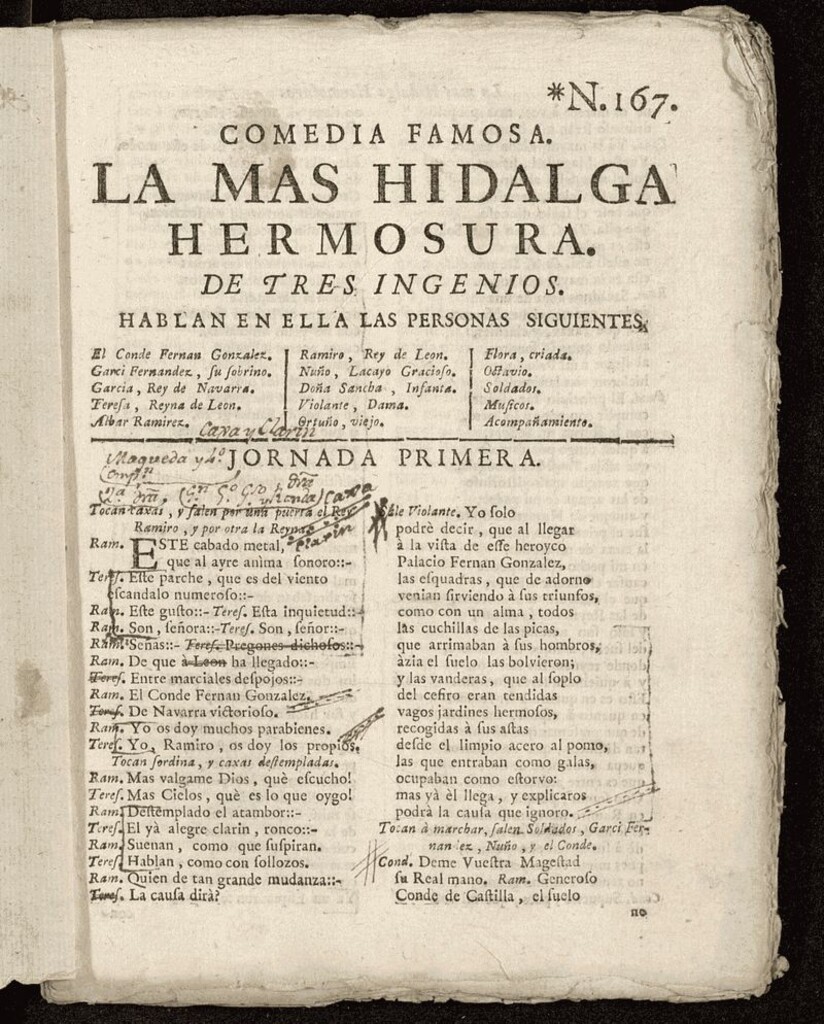 *N.167.
COMEDIA FAMOSA.
LA MAS HIDALGA
HERMOSURA.
DE TRES INGENIOS.
HABLAN EN ELLA LAS PERSONAS SIGUIENTES.
El Conde Fernan Gonzalez.
Garci Fernandez, su sobrino.
Garcia, Rey de Navarra.
Teresa, Reyna de Leon.
Albar Ramirez.
Ramiro, Rey de Leon.
Nuño, Lacayo Gracioso.
Doña Sancha, Infanta.
Violante, Dama.
Ortuño, viejo.
Flora, criada.
Octavio.
Soldados.
Musicos.
Acompañamiento.
Caxa y Clarin
JORNADA PRIMERA.
Maqueda y
Caxa
Clarin
Tocan caxas, y salen por una puerta el Rey
Ramiro, y por otra la Reyna.
Ram. ESTE cabado metal,
que al ayre anima sonoro::-
Teres. Este parche, que es del viento
escandalo numeroso::-
Ram. Este gusto::- Teres. Esta inquietud::-
Ram. Son, señora::- Teres. Son, señor::-
Ram. Señas::- Teres. Pregones dichosos::-
Ram. De que à Leon ha llegado::-
Teres. Entre marciales despojos::-
Ram. El Conde Fernan Gonzalez.
Teres. De Navarra victorioso.
Ram. Yo os doy muchos parabienes.
Teres. Yo, Ramiro, os doy los propios.
Tocan sordina, y caxas destempladas.
Ram. Mas valgame Dios, què escucho!
Teres. Mas Cielos, què es lo que oygo!
Ram. Destemplado el atambor::-
Teres. El yà alegre clarin, ronco::-
Ram. Suenan, como que suspiran.
Teres. Hablan, como con sollozos.
Ram. Quien de tan grande mudanza::-
Teres. La causa dirà?
Sale Violante. Yo solo
podrè decir, que al llegar
à la vista de esse heroyco
Palacio Fernan Gonzalez,
las esquadras, que de adorno
venian sirviendo à sus triunfos,
como con un alma, todos
las cuchillas de las picas,
que arrimaban à sus hombros,
àzia el suelo las bolvieron;
y las vanderas, que al soplo
del cefiro eran tendidas
vagos jardines hermosos,
recogidas à sus astas
desde el limpio acero al pomo,
las que entraban como galas,
ocupaban como estorvo:
mas yà èl llega, y explicaros
podrà la causa que ignoro.
Tocan à marchar, salen Soldados, Garci Fer-
nandez, Nuño, y el Conde.
Cond. Deme Vuestra Magestad
su Real mano. Ram. Generoso
Conde de Castilla, el suelo
no